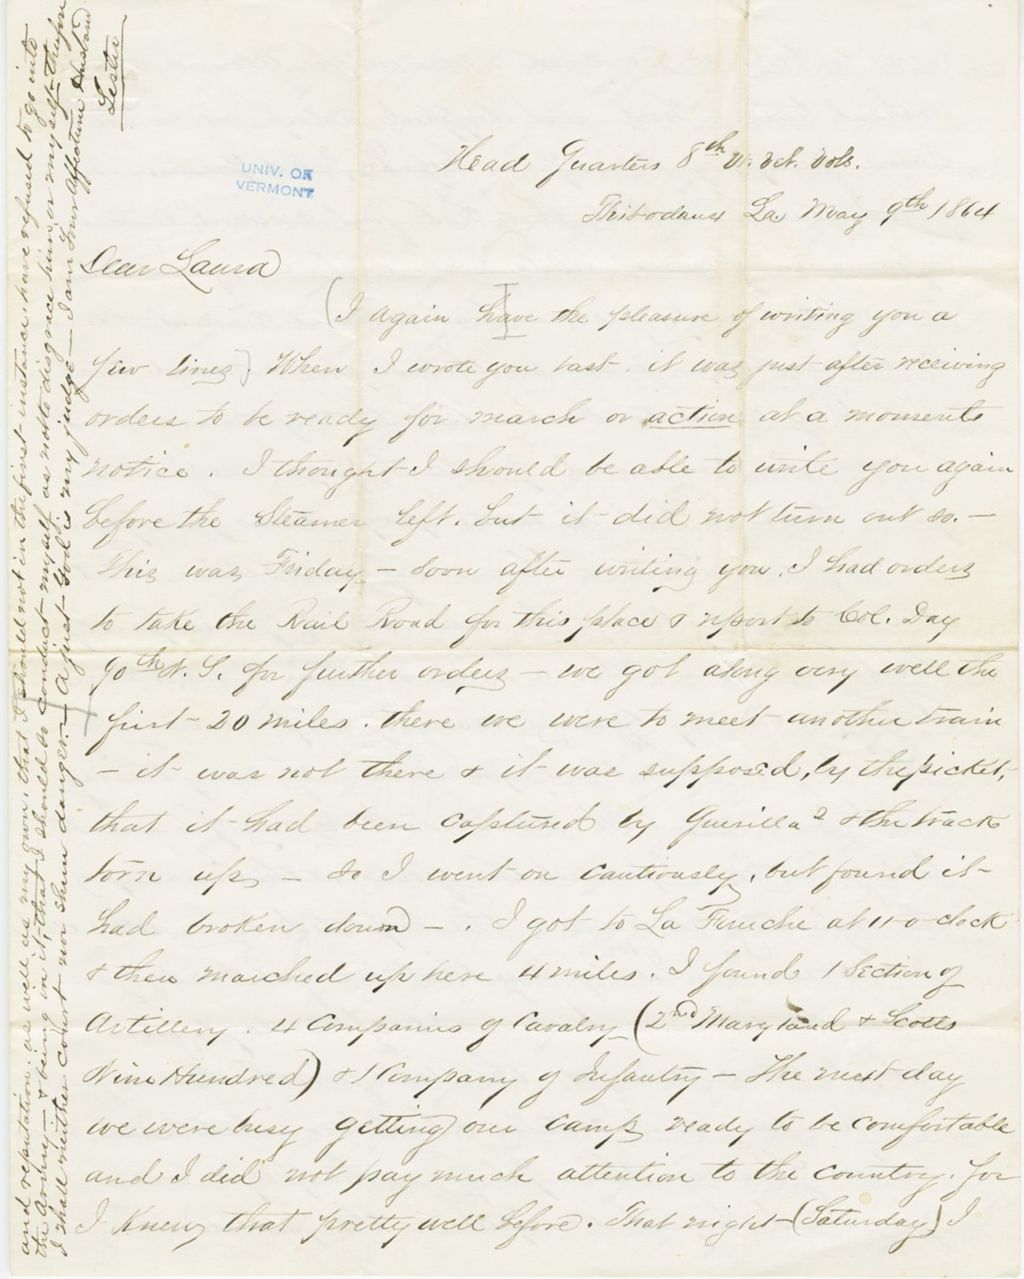 Head Quarters 8th Vt. Vet. Vols.
Thibodaux La May 9th 1864
UNIV. OF
VERMONT
Dear Laura
(I again have the pleasure of writing you a
few lines) When I wrote you last. it was just after receiving
orders to be ready for march or action at a moments
notice. I thought I should be able to write you again
before the Steamer left. but it did not turn out so. –
This was Friday – Soon after writing you, I had orders
to take the Rail Road for this place & report to Col. Day
90th N.Y. for further orders – we got along very well the
first 20 miles. there we were to meet another train
– it was not there & it was supposed, by the picket,
that it had been captured by Guerillas & the track
torn up – So I went on cautiously, but found it
had broken down – . I got to La Fourche at 11 o clock
& then marched up here 4 miles. I found 1 Section of
Artillery. 4 Companies of Cavalry (2nd Maryland & Scotts
Nine Hundred) & 1 Company of Infantry – The next day
we were busy getting our camp ready to be comfortable
and I did not pay much attention to the country. for
I knew that pretty well before. That night (Saturday) I
and reputation. as well as my own, that I should not in the first instance have refused to go into
the Army – & being in it, that I should so conduct myself as not to disgrace him or myself – therefore
I shall neither court nor shun danger. – A just God is my judge – I am Your Affectione Husband
Lester